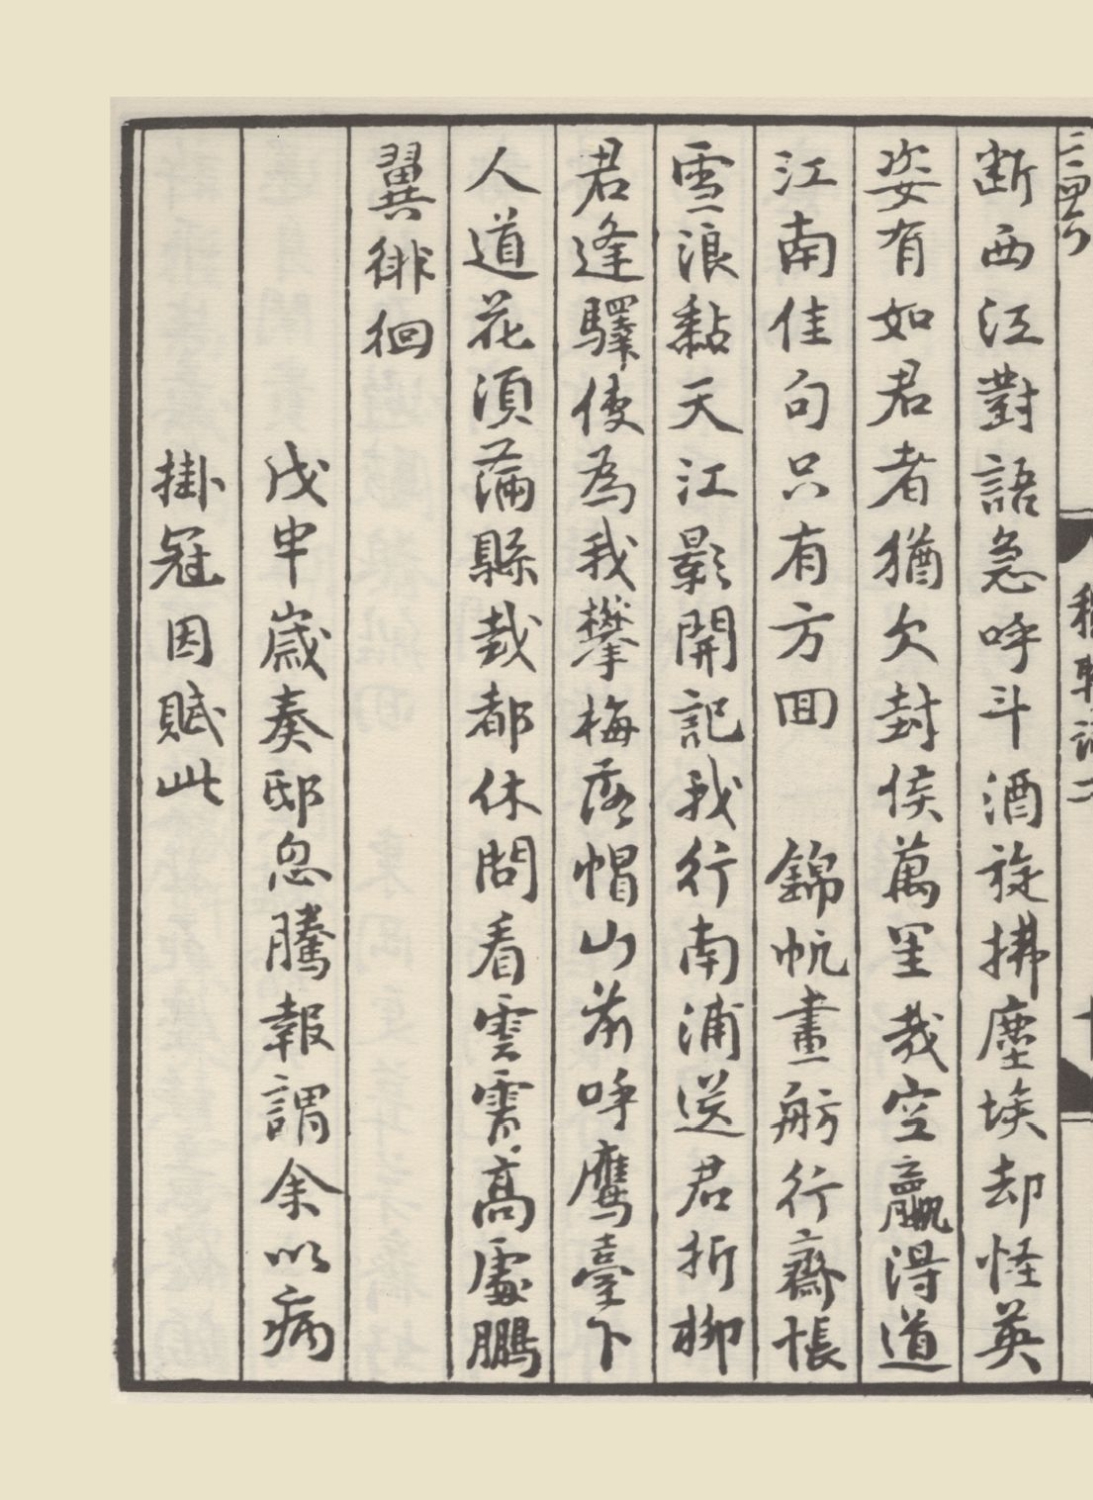 断西江對語急呼斗酒旋拂塵埃却怪英
姿有如君者猶欠封侯萬里哉空贏得道
江南佳句只有方回　錦帆畫舫行齋悵
雪浪黏天江影開記我行南浦送君折柳
君逢驛使為我攀梅落帽山前呼鷹臺下
人道花須滿縣栽都休問看雲霄高處鵬
翼徘徊
戊申歲奏邸忽騰報謂余以病
掛冠因賦此